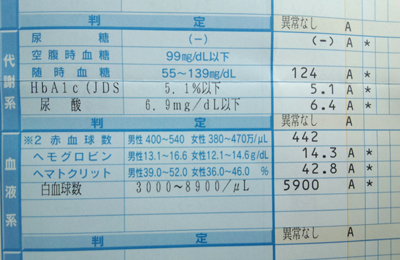 判 定 異常なし A
尿糖 (-) (-) A *
空腹時血糖 99mg/dL以下
随時血糖 55~139mg/dL 124 A *
HbA1c(JDS 5.1%以下 5.1 A *
尿酸 6.9mg/dL以下 6.4 A *
代謝系
判 定 異常なし A
※2 赤血球数 男性 400~540 女性 380~470万/μL 442
ヘモグロビン 男性13.1~16.6 女性12.1~14.6g/dL 14.3 A *
ヘマトクリット 男性39.0~52.0 女性36.0~46.0 % 42.8 A *
白血球数 3000~8900/μL 5900 A *
血液系
判 定 異常なし A